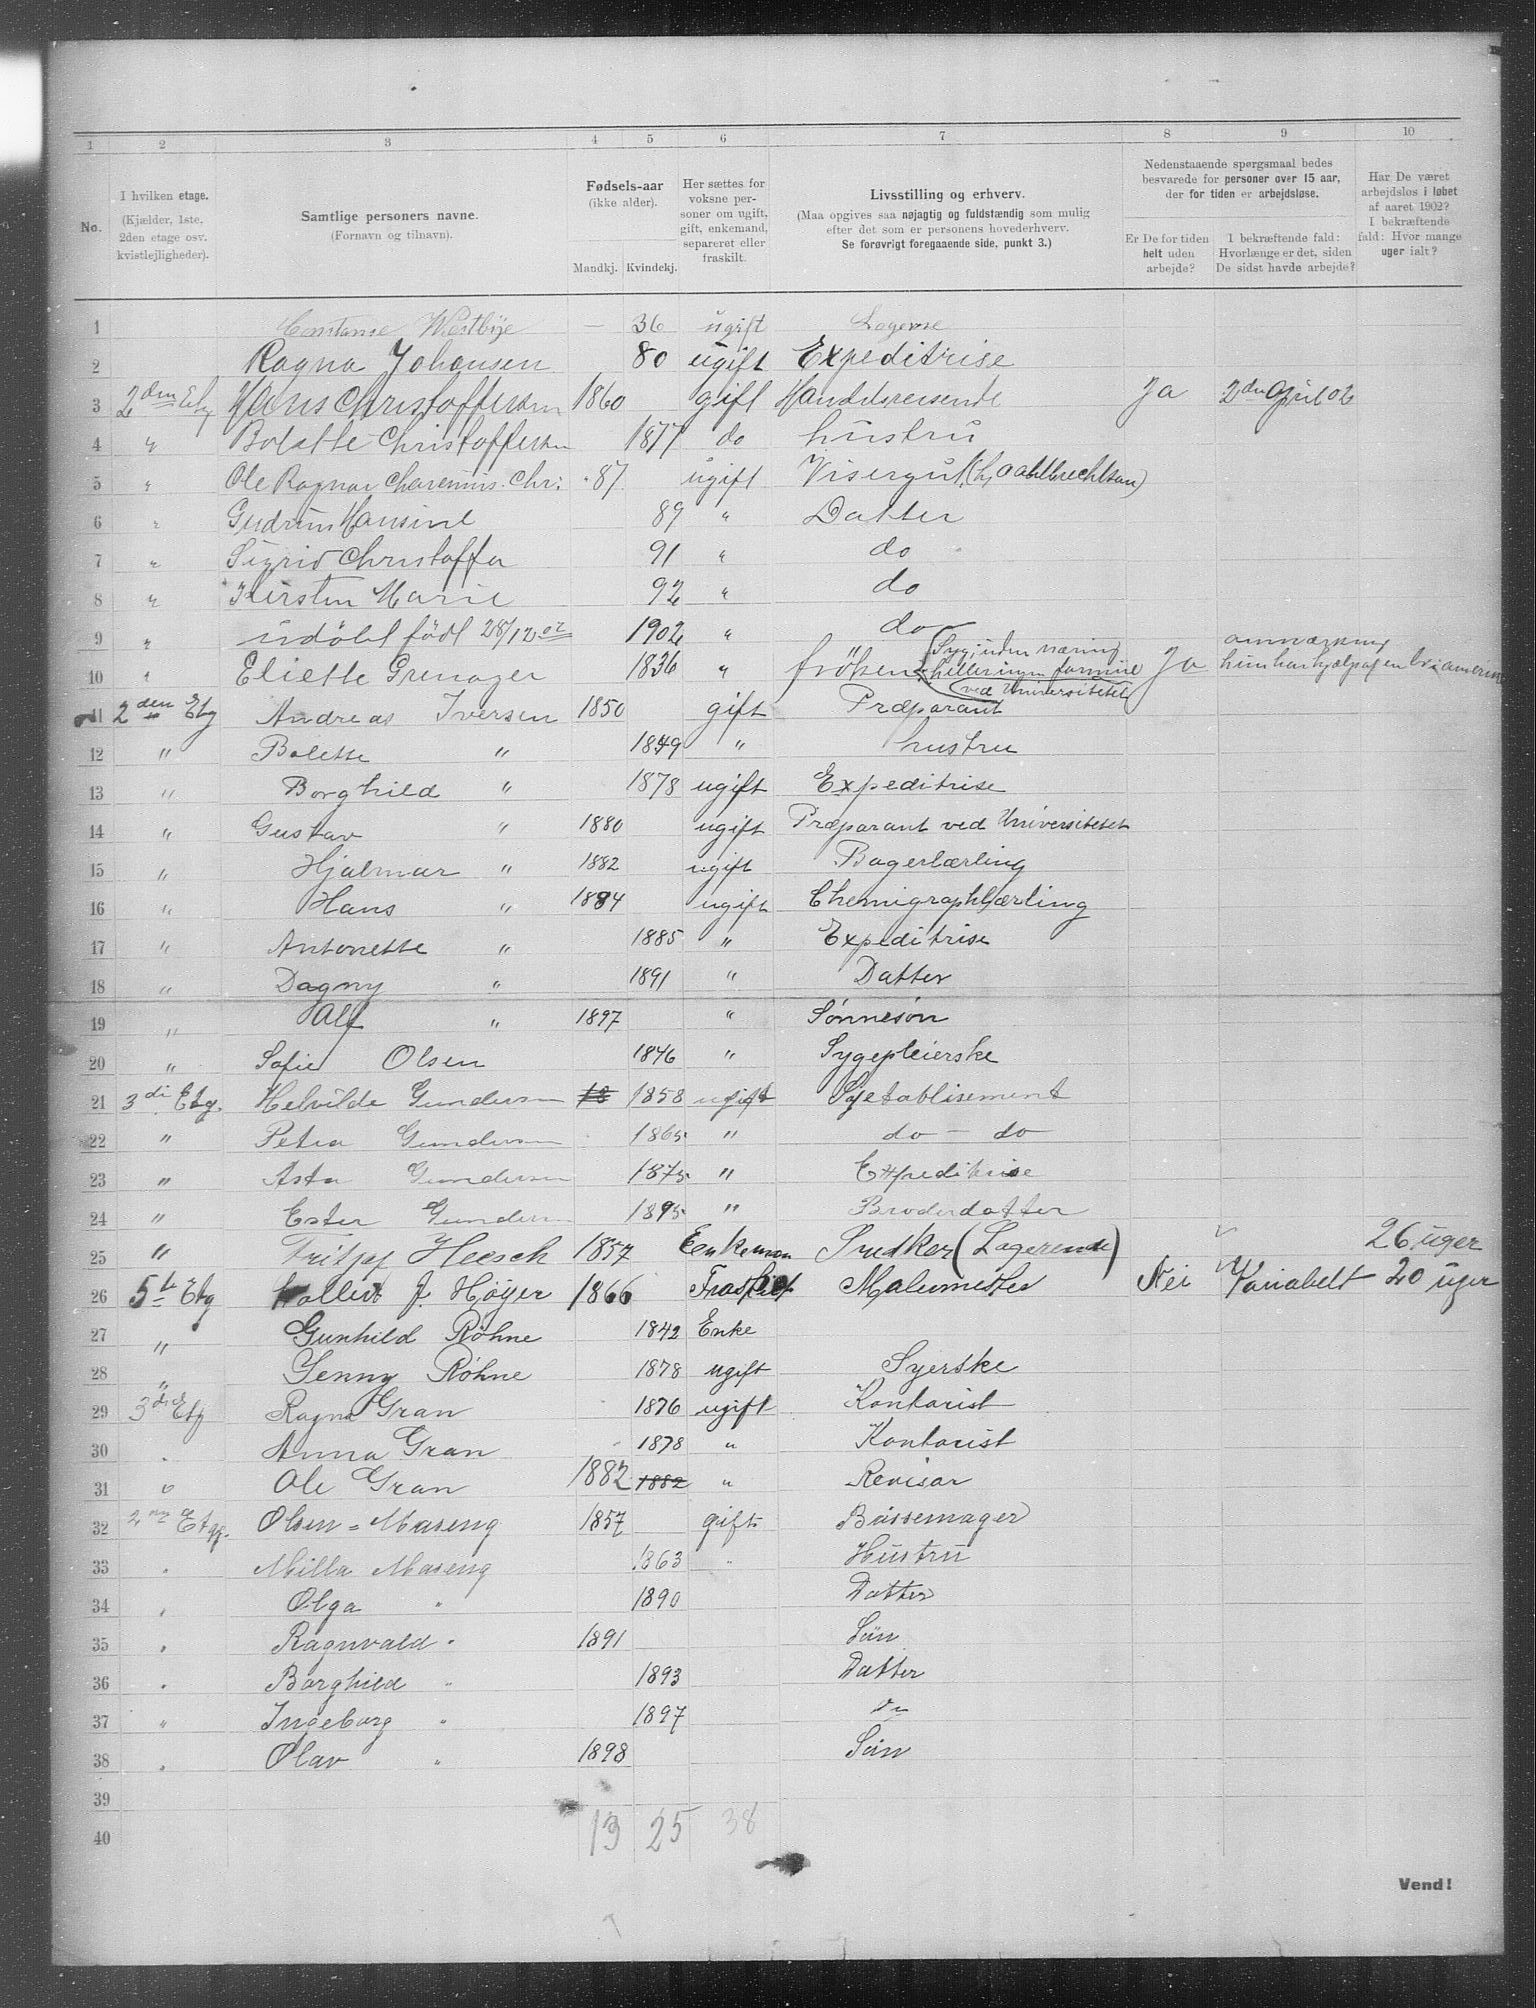 1 2 3 4 5 6 7 8 9 10
No.
I hvilken etage. (Kjælder, 1ste, 2den etage osv. kvistlejligheder).
Samtlige personers navne. (Fornavn og tilnavn).
Fødsels-aar (ikke alder). Mandkj. Kvindekj.
Her sættes for voksne personer om ugift, gift, enkemand, separeret eller fraskilt.
Livsstilling og erhverv. (Maa opgives saa nøjagtig og fuldstændig som mulig efter det som er personens hovederhverv. Se forøvrigt foregaaende side, punkt 3.)
Nedenstaaende spørgsmaal bedes besvarede for personer over 15 aar, der for tiden er arbejdsløse.
Er De for tiden helt uden arbejde?
I bekræftende fald: Hvorlænge er det, siden De sidst havde arbejde?
Har De været arbejdsløs i løbet af aaret 1902? I bekræftende fald: Hvor mange uger ialt?
1 Constanse Westbye — 36 ugift Logerne
2 Ragna Johansen 80 ugift Expeditrise
3 2den Etg Hans Christoffersen 1860 gift Handelsreisende Ja 2den April 02
4 " Bolette Christoffersen 1877 do hustru
5 " Ole Ragnar Chr: 87 ugift Visergut
6 " Gudrun Hansine 89 " Datter
7 " Sigrid Christoffa 91 " do
8 " Kirsten Marie 92 " do
9 " udöbt födt 28/12 02 1902 " do
10 " Eliette Grenager 1836 " fröken Ja
11 2den Etg Andreas Iversen 1850 gift Præparant ved Universitetet
12 " Bolette " 1849 " hustru
13 " Borghild " 1878 ugift Expeditrise
14 " Gustav " 1880 ugift Præparant ved Universitetet
15 " Hjalmar " 1882 ugift Bagerlærling
16 " Hans " 1884 ugift Chemigraphlærling
17 " Antonette " 1885 " Expeditrise
18 " Dagny " 1891 " Datter
19 " Alf " 1897 " Sønnesøn
20 " Sofie Olsen 1846 " Sygepleierske
21 3di Etg. Helvilde Gundersen 18 1858 ugift Syetablisement
22 " Petra Gundersen 1865 " do — do
23 " Asta Gundersen 1875 " Expeditrise
24 " Ester Gundersen 1895 " Broderdatter
25 " Heesch 1857 Enkeman Snedker (Logerende) 26 uger
26 5te Etg J. Höyer 1866 Fraskilt Malermester Nei Variabelt 20 uger
27 " Gunhild Røhne 1842 Enke
28 " Jenny Røhne 1878 ugift Syerske
29 3die Etg Ragna Gran 1876 ugift Kontorist
30 . Anna Gran 1878 " Kontorist
31 " Ole Gran 1882 1882 " Revisor
32 2den Etg. Olsen = Maseng 1857 gift Børsemager
33 . Milla Maseng 1863 " Hustru
34 . Olga " 1890 Datter
35 . Ragnvald " 1891 Sön
36 . Borghild " 1893 Datter
37 " Ingeborg " 1897 do
38 . Olav " 1898 Sön
39
40 13 25 38
Vend!